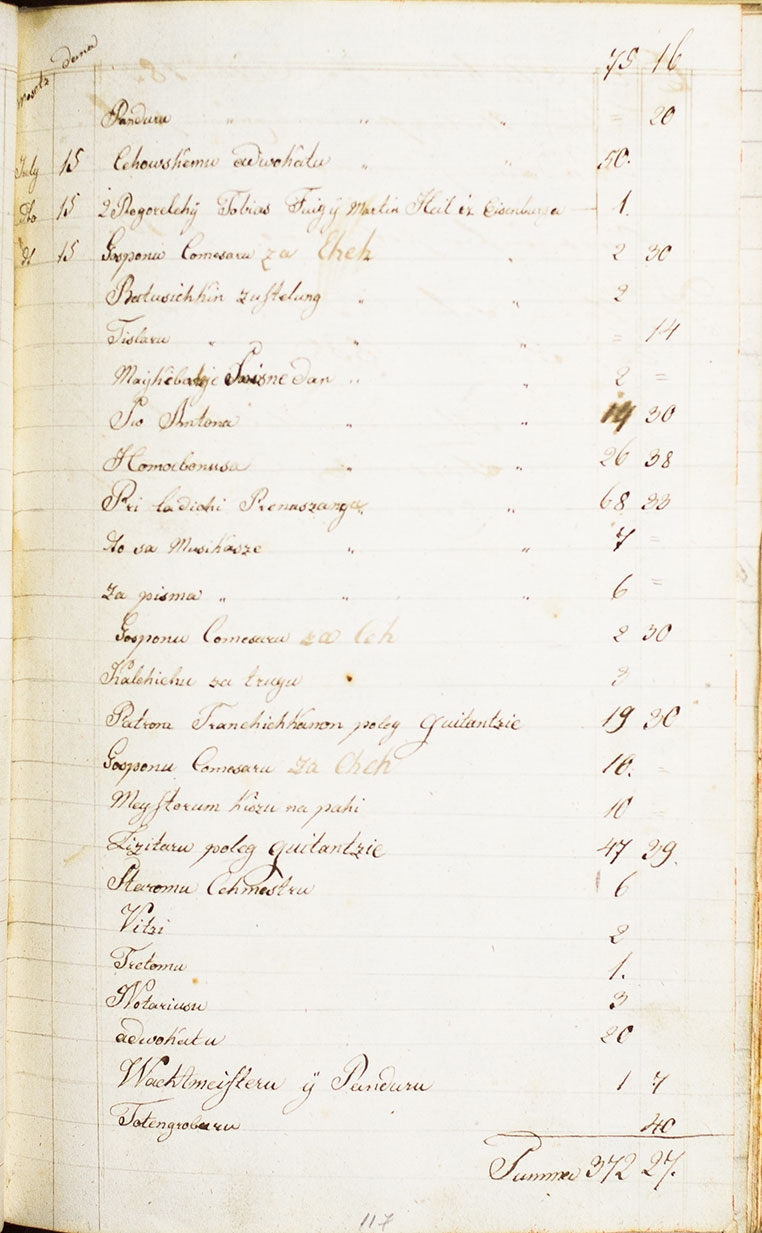 Mesetz dana 75 16
Panduru " " " = 20
July 15 Cehowskemu adwokatu " " 50.
dto 15 2 Pogorelchÿ Tobias Fuig ÿ Martin Heil iz Eisenburga 1.
dt 15 Gosponu Comesaru za Cheh " 2 30
Bertusichkin zustelung " " 2
Tislaru " " " = 14
Maykebatzje Swisne dan " " 2 =
Pro Antona " " 14 30
Homoebonusa " " 26 38
Pri ladichi Prenaszanya " " 68 33
dto sa Musikasze " " 7 =
Za pisma " " " 6 =
Gosponu Comesaru za Ceh 2 30
Kalchichu za trugu 3
Patrona Franchichkanon poleg quitantzie 19 30
Gosponu Comesaru za Cheh 16. =
Meystorum kiszu na pahi 10 =
Lizitaru poleg quitantzie 47 39.
Staromu Cehmestru 6
Vitzi 2
Tretomu 1.
Notariusu 3
adwokatu 20
Wachtmeisteru ÿ Panduru 1 7
Totengroberu 40
Summa 372 27.
117